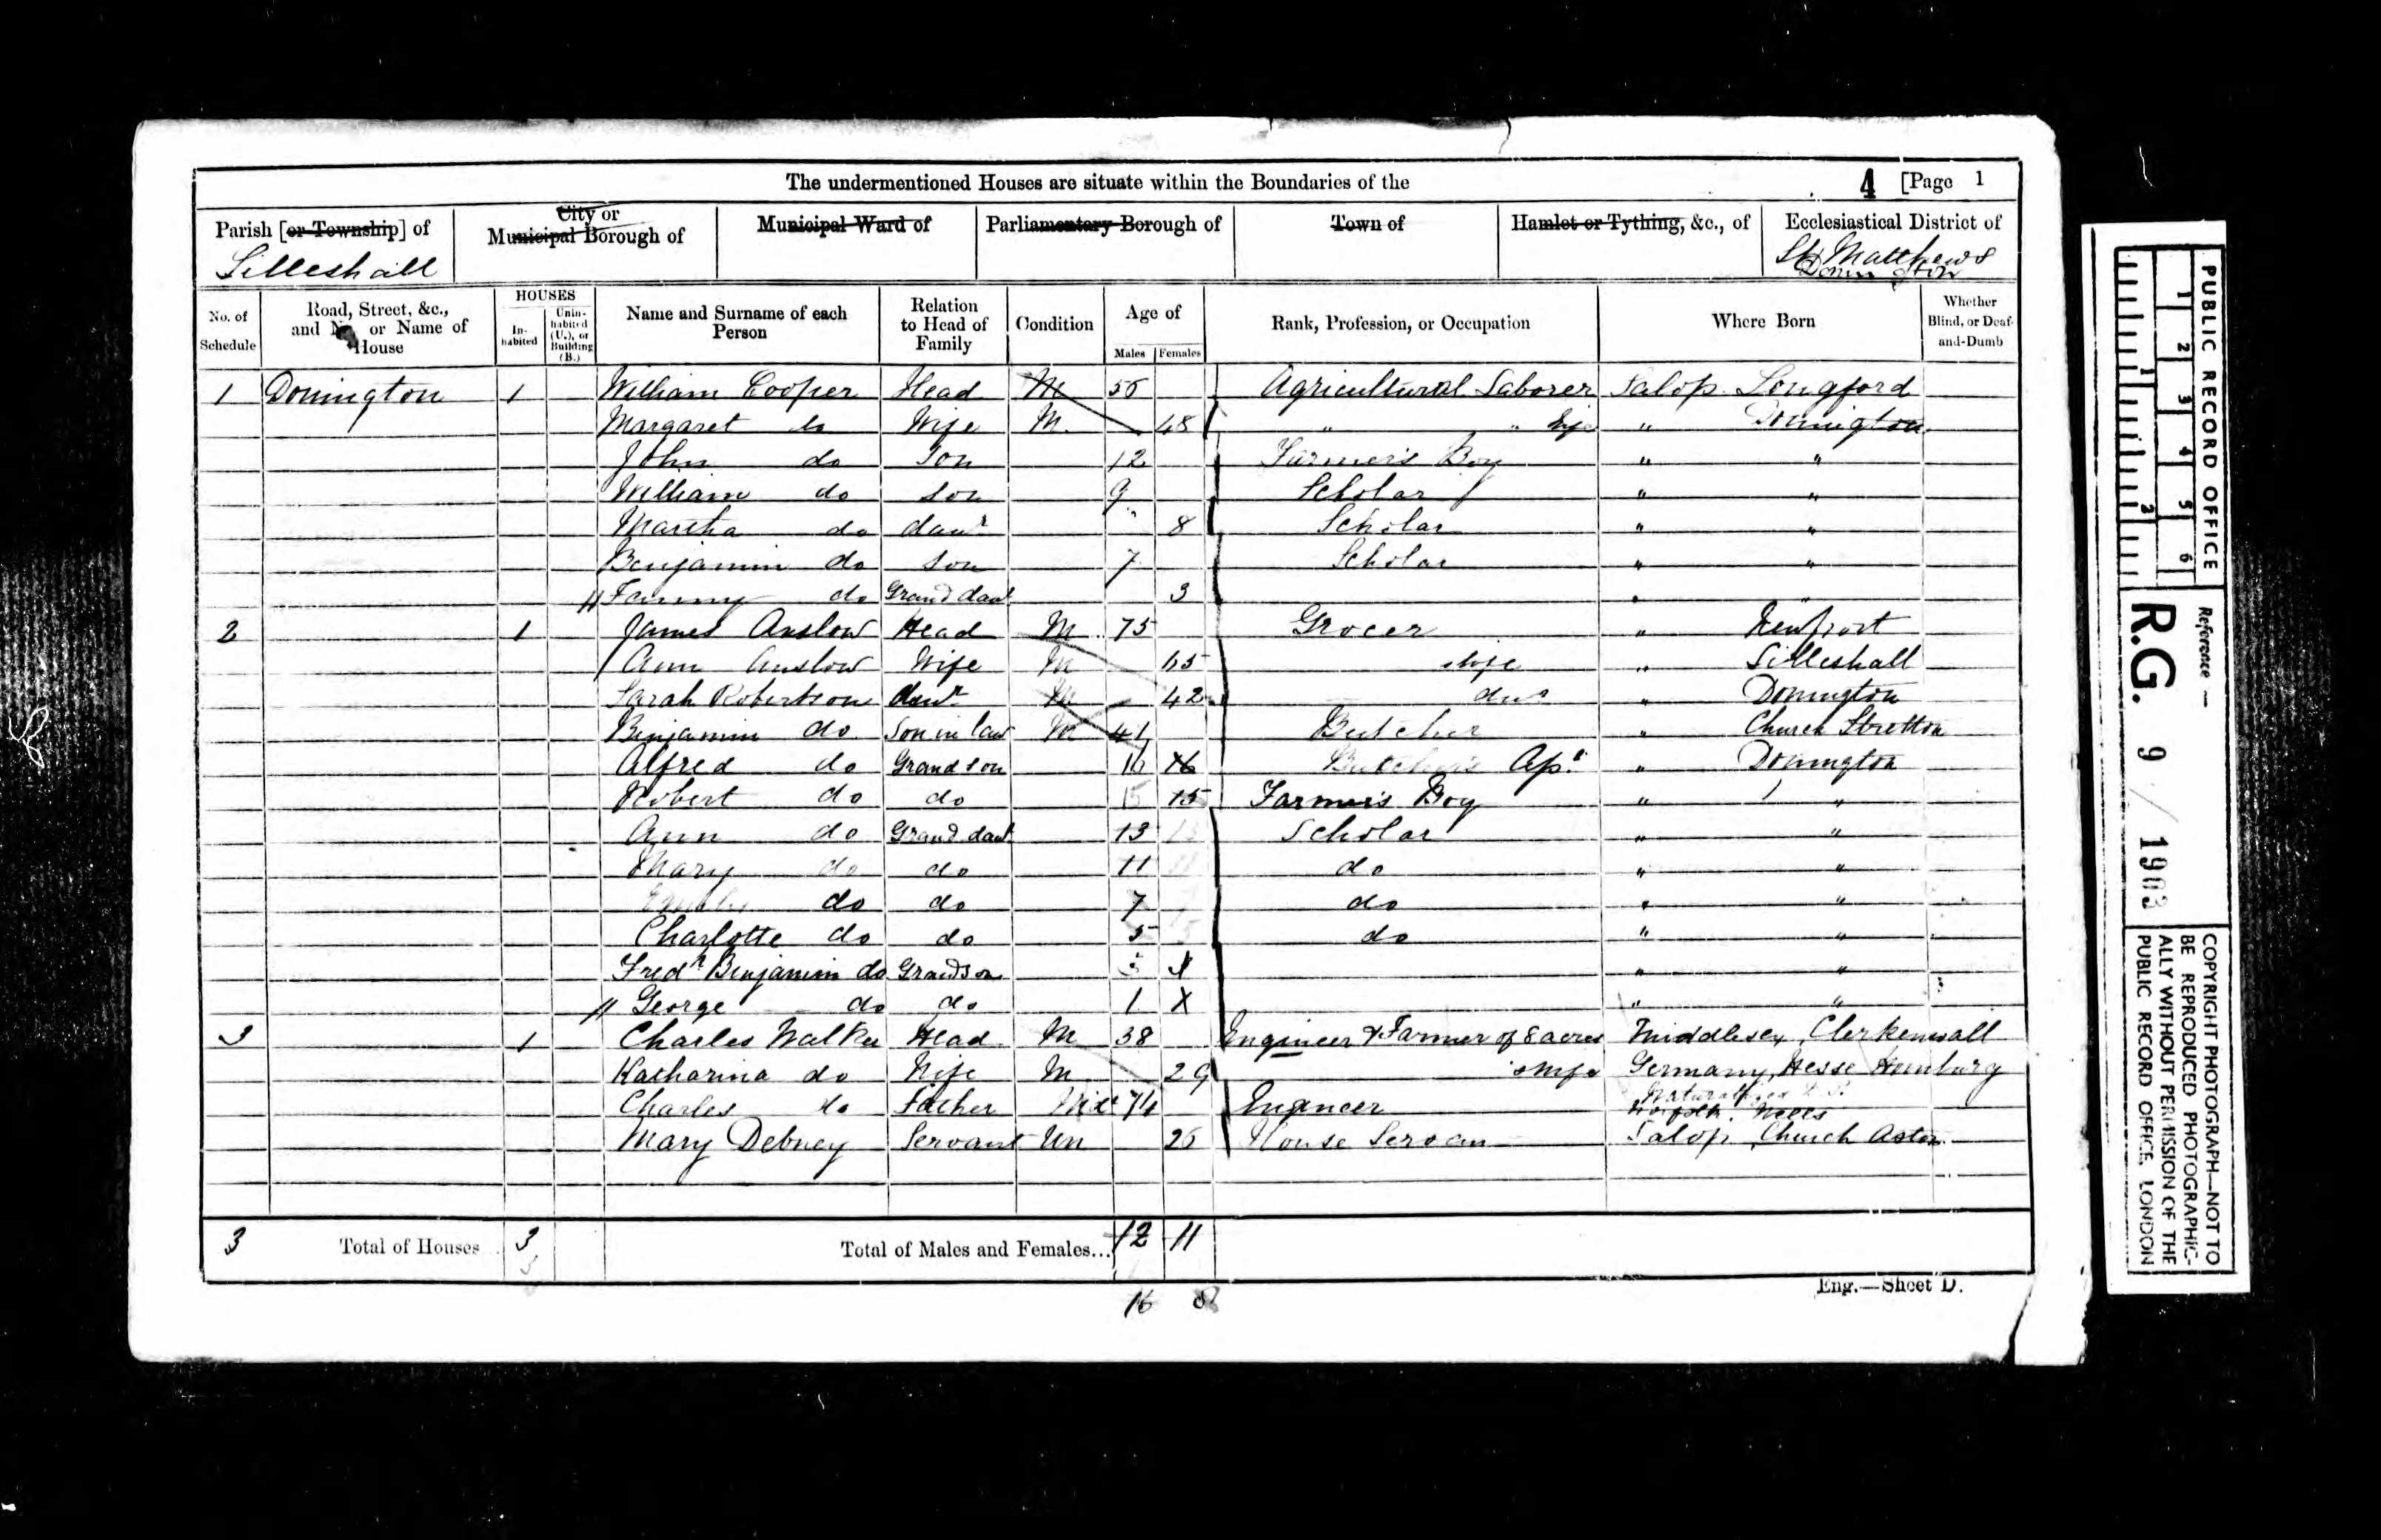 The undermentioned Houses are situate within the Boundaries of the 4 [Page 1
Parish [or Township] of City or Municipal Borough of Municipal Ward of Parliamentary Borough of Town of Hamlet or Tything, &c., of Ecclesiastical District of
Lilleshall St Matthews Donington
No. of Schedule Road, Street, &c., and No. or Name of House HOUSES Inhabited Uninhabited (U.), or Building (B.) Name and Surname of each Person Relation to Head of Family Condition Age of Males Females Rank, Profession, or Occupation Where Born Whether Blind, or Deaf-and-Dumb
1 Donington 1 William Cooper Head M 56 Agricultural Laborer Salop Longford
Margaret do Wife M 48 " " wife " Donington
John do Son 12 Farmer's Boy " "
William do Son 9 Scholar " "
Martha do daur 8 Scholar " "
Benjamin do Son 7 Scholar " "
Fanny do Grand daur 3 " "
2 1 James Anslow Head M 75 Grocer " Newport
Ann Anslow Wife M 65 wife " Lilleshall
Sarah Robertson daur M 42 daur " Donington
Benjamin do Son in law M 41 Butcher " Church Stretton
Alfred do Grandson 16 16 Butcher's Ap. " Donington
Robert do do 15 15 Farmer's Boy " "
Ann do Grand daur 13 13 Scholar " "
Mary do do 11 11 do " "
Emily do do 7 7 do " "
Charlotte do do 5 5 do " "
Fredk Benjamin do Grandson 3 " "
George do do 1 X " "
3 1 Charles Walker Head M 38 Engineer & Farmer of 8 acres Middlesex, Clerkenwall
Katharina do Wife M 29 wife Germany, Hesse Homburg
Naturalized
Charles do Father 74 Engineer Norfolk
Mary Debney Servant Un 26 House Servan Salop, Church Aston
3 Total of Houses 3 Total of Males and Females... 12 11
3
16 8
Eng.—Sheet D.
PUBLIC RECORD OFFICE
1 2 3 4 5 6
1 2
Reference —
R.G. 9 / 1903
COPYRIGHT PHOTOGRAPH—NOT TO BE REPRODUCED PHOTOGRAPHIC-
ALLY WITHOUT PERMISSION OF THE
PUBLIC RECORD OFFICE, LONDON